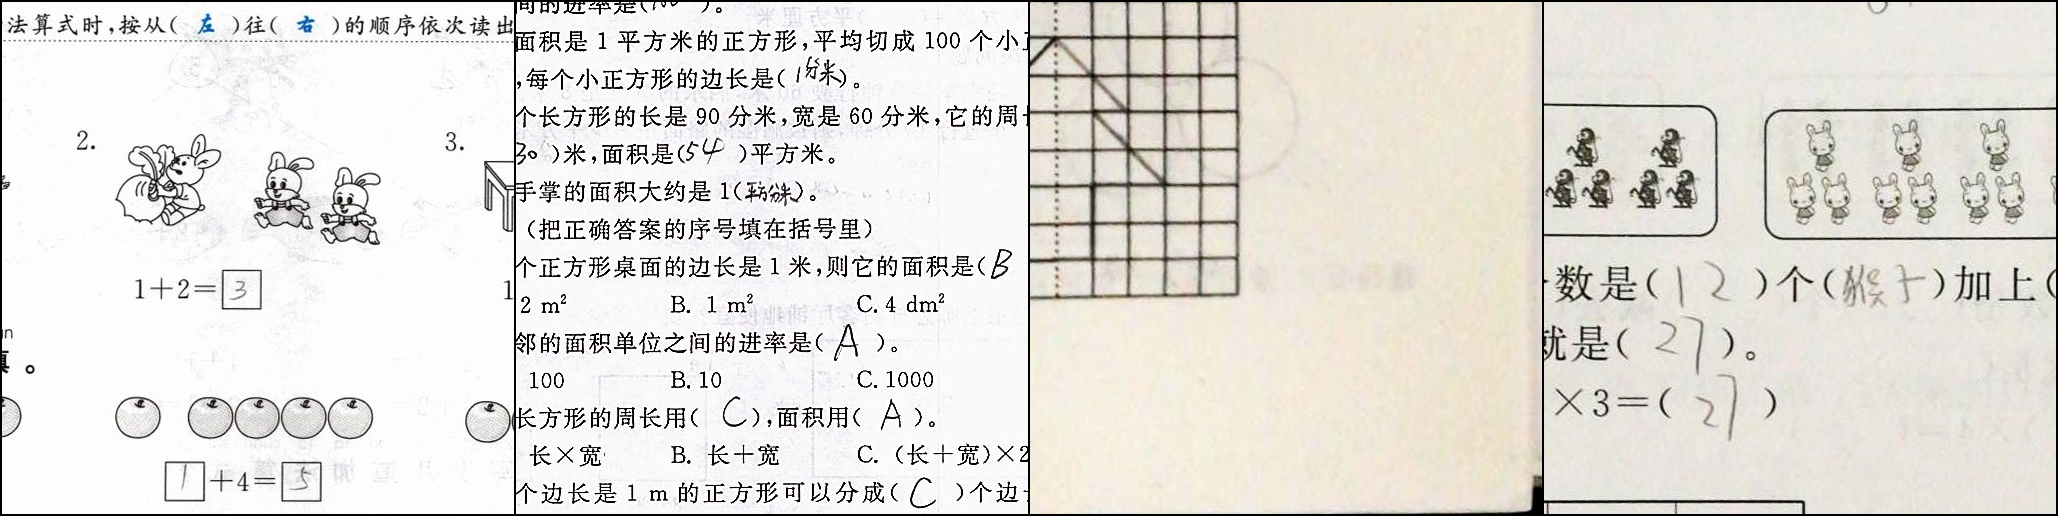 法算式时,按从( 左 )往( 右 )的顺序依次读出
2.
3.
1+2=3
1
1+4=5
间的进率是(100 )。
面积是 1 平方米的正方形,平均切成 100 个小正
,每个小正方形的边长是(1分米)。
个长方形的长是 90 分米,宽是 60 分米,它的周长
30 )米,面积是(54 )平方米。
手掌的面积大约是 1(平方分米)。
(把正确答案的序号填在括号里)
个正方形桌面的边长是 1 米,则它的面积是( B
2 m² B. 1 m² C. 4 dm²
邻的面积单位之间的进率是( A )。
100 B. 10 C. 1000
长方形的周长用( C ),面积用( A )。
长×宽 B. 长+宽 C. (长+宽)×2
个边长是 1 m 的正方形可以分成( C )个边长
数是(12)个(猴子)加上(
就是( 27 )。
×3=( 27 )